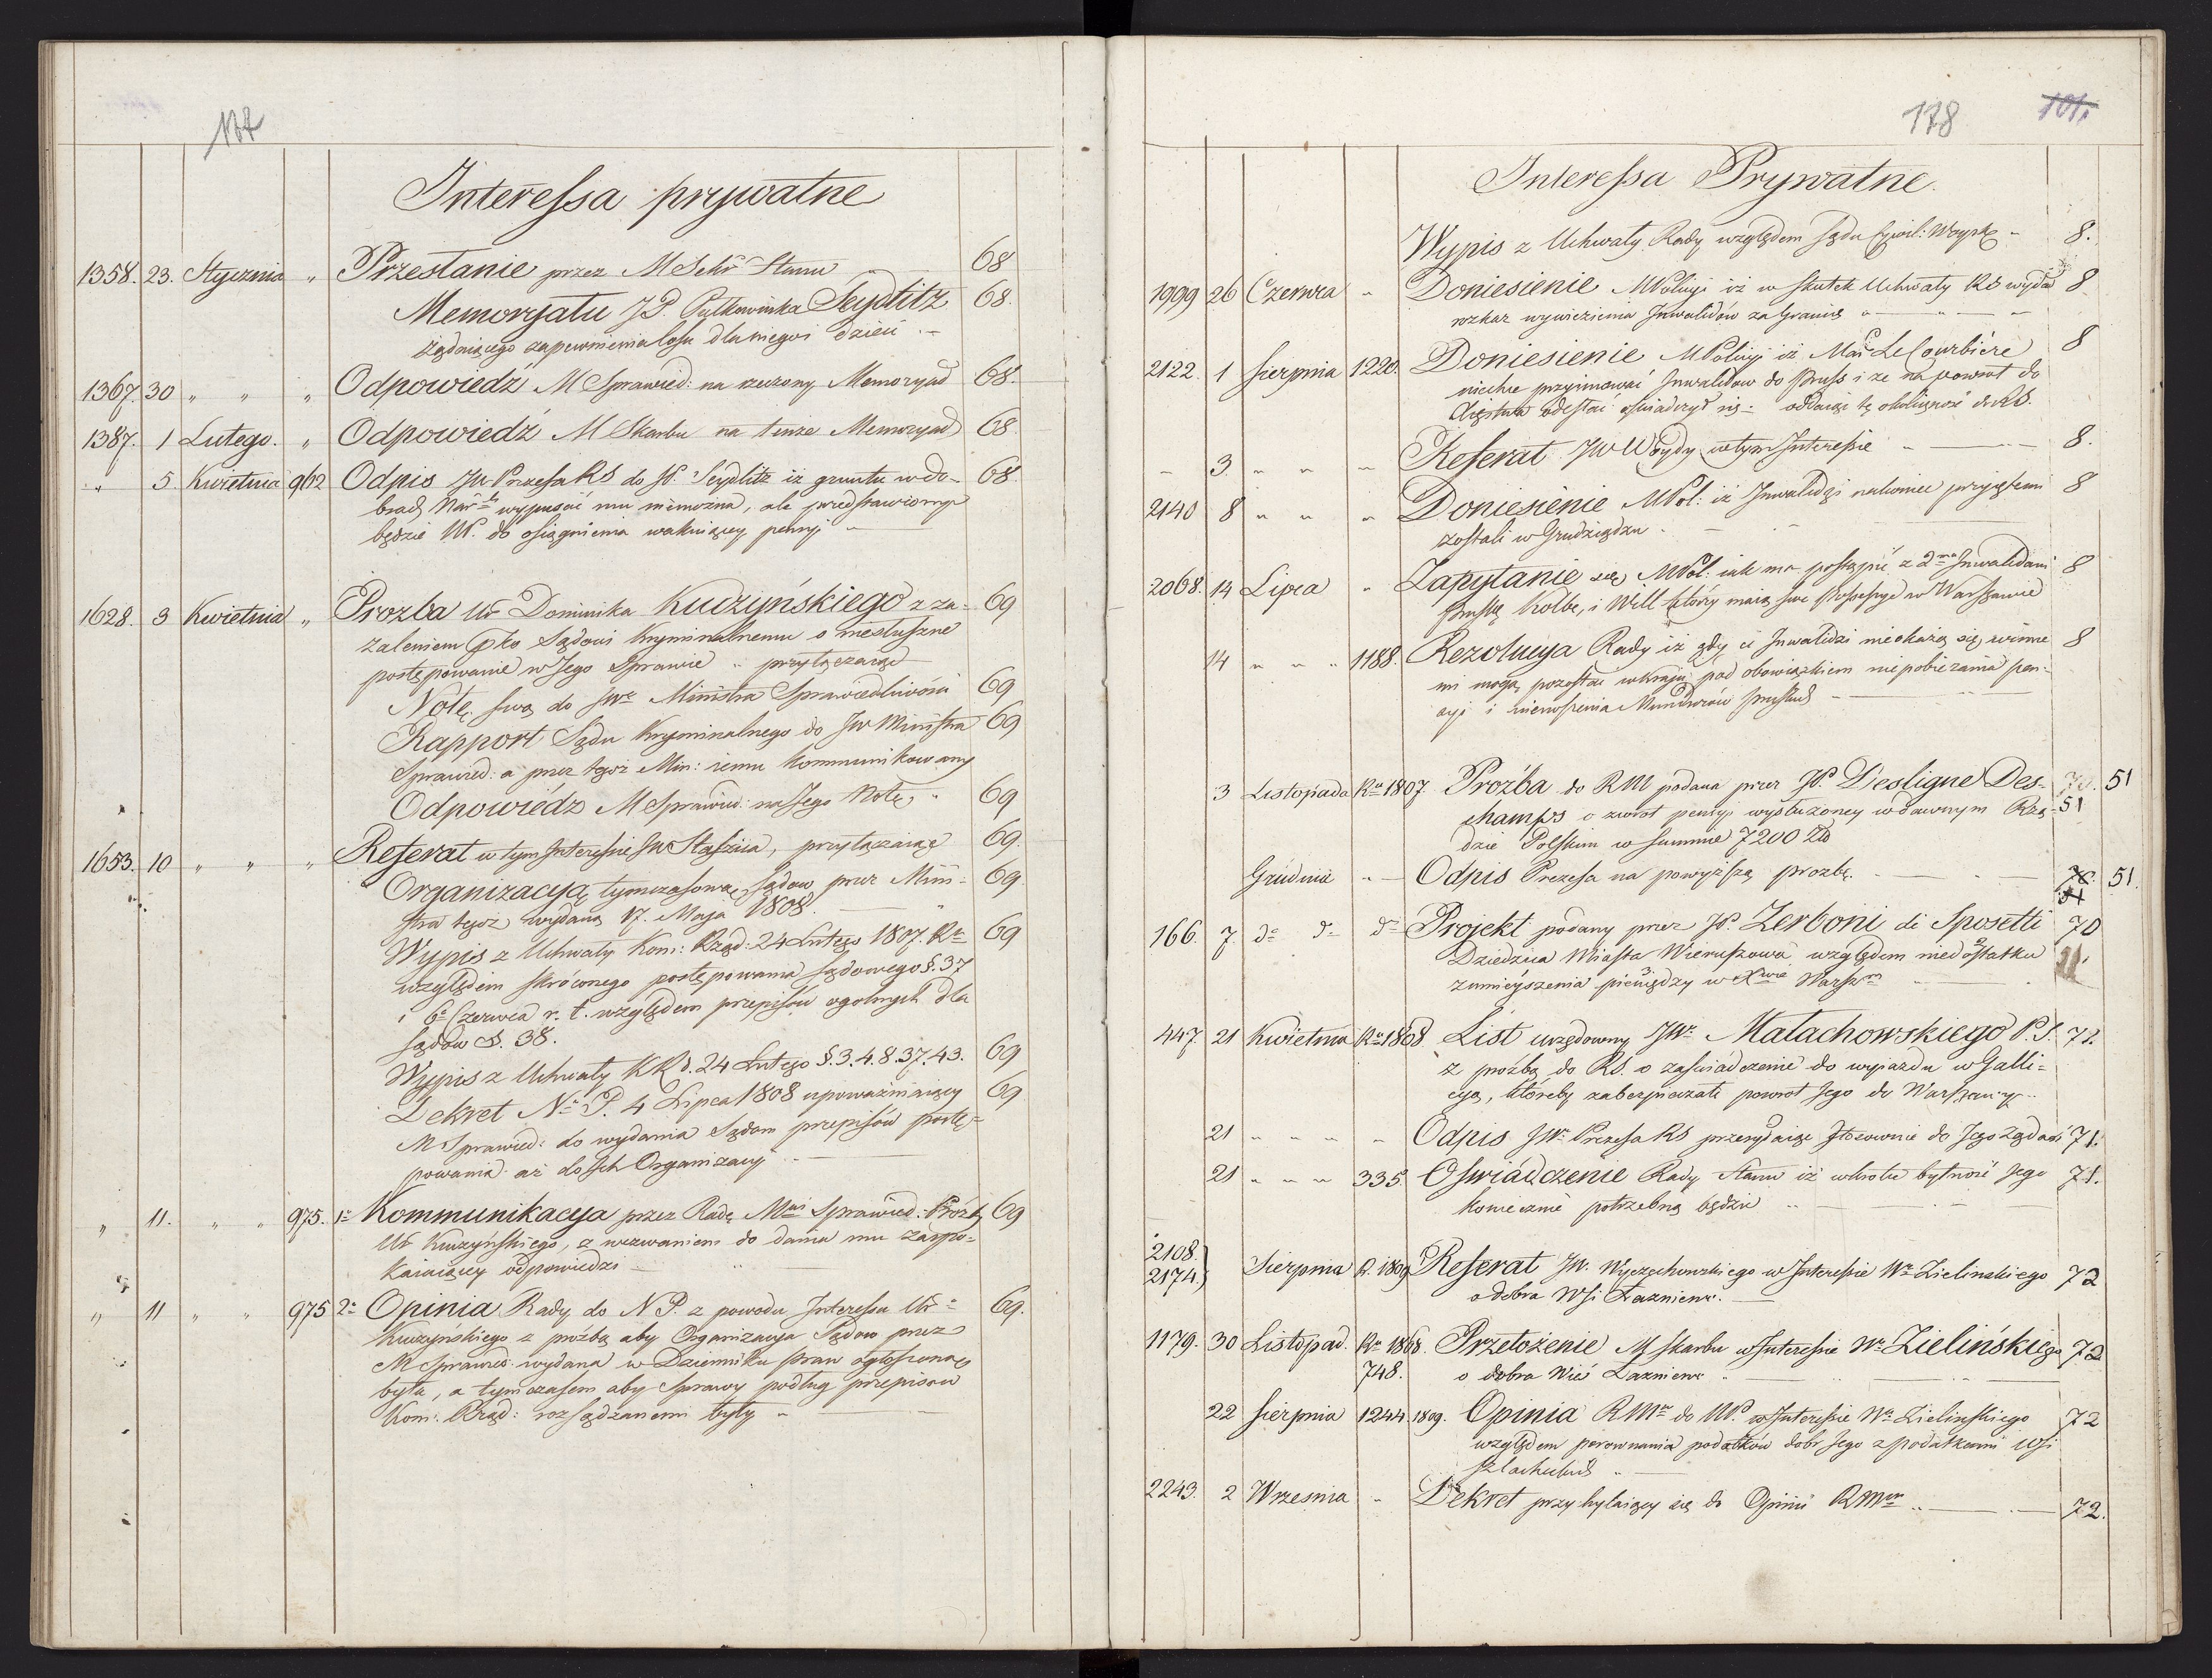 177
Interessa prywatne
1358. 23. Stycznia " Przesłanie przez M Sekr Stanu 68
Memoryału JP. Pułkownika Seydlitz 68.
żądaiącego zapewnienia losu dla niego i dzieci .-
1367. 30 " " " Odpowiedź M Sprawied: na rzeczony Memoryał 68.
1387. 1 Lutego. " Odpowiedź M Skarbu na tenże Memoryał 68
" 5. Kwietnia 962 Odpis JW Prezesa RS do JP. Seydlitz iż gruntu w do- 68.
brach Nar: wypuścić mu niemożna, ale przedstawiony
będzie NP. do osiągnienia wakuiącey pensyi -
1628. 3 Kwietnia " Prozba Ur Dominika Kuczyńskiego z za- 69
żaleniem pko Sądowi Kryminalnemu o niesłuszne
postępowanie w Jego Sprawie " przyłączaiąc
Notę swą do JWo Ministra Sprawiedliwości 69
Rapport Sądu Kryminalnego do JW Ministra 69
Sprawied: a przez tegoż Min: iemu kommunikowany
Odpowiedz M Sprawied: na Jego Notę " 69
1653. 10 " " " Referat w tym Interessie JW Staszica, przyłączaiąc 69.
Organizacyą tymczasową Sądow przez Mini- 69.
stra tegoż wydaną 17. Maja 1808.
Wypis z Uchwały Kom: Rząd: 24 Lutego 1807. Ro 69
względem skróconego postępowania sądowego §. 37
i 6o Czerwca r. t. względem przepisów ogolnych dla
sądów §. 38.
Wypis z Uchwały KRd. 24 Lutego §. 3. 4. 8. 37. 43. 69
Dekret No P. 4 Lipca 1808 upoważniaiący 69
M Sprawied: do wydania Sądom przepisów postę-
powania aż do Ich Organizacyi
" 11. " " 975. 1o Kommunikacya przez Radę Mowi Sprawied: Prozby 69
Ur Kuczyńskiego, z wezwaniem do dania mu zaspo-
kaiaiącey odpowiedzi
" 11 " " 975 2o Opinia Rady do NP. z powodu Interessu Ur 69.
Kuczyńskiego z prożbą aby Organizacya Sądow przez
M Sprawied: wydana w Dzienniku praw ogłoszoną
była, a tymczasem aby sprawy podług przepisow
Kom: Rząd: rozsądzanemi były "
178
101.
Interessa Prywatne.
Wypis z Uchwały Rady względem Sądu 8.
1999 26 Czerwca " Doniesienie M Policyi iż w skutek Uchwały RS wydał 8
rozkaz wywiezienia Inwalidów za Granicę
2122. 1 Sierpnia 1220. Doniesienie M Policyi iż Mar LeCourbière 8
niechce przyimować Inwalidow do Pruss i że na powrot do
Xięstwa odesłać oświadczył się - oddaiąc tę okoliczność do RS.
- 3 " " " Referat JW Woydy w tym Interessie 8.
2140 8 " " " Doniesienie M Pol: iż Inwalidzi nakoniec przyjętemi 8
zostali w Grudziądzu
2068. 14 Lipca " Zapytanie się M Pol: iak ma postąpić z 2ma Inwalidami 8
Pruskie Kolbe, i Will którzy maią swe Possessye w Warszawie
14 " " " 1188. Rezolucya Rady iż gdy ci Inwalidzi nieokażą się winne- 8
mi mogą pozostać w kraju pod obowiązkiem niepobierania pen-
syi i nienoszenia Mundurów pruskich
3 Listopada Ro 1807. Proźba do RM podana przez JP. Desligne Des- 70. 51
champs o zwrot pensyi wysłużoney w dawnym Rzą- 51
dzie Polskim w summie 7200 Złł
Grudnia " - Odpis Prezesa na powyższą prozbę. 70. 51.
51
166. 7. do do do Projekt podany przez JP. Zerboni di Sposetti 70
Dziedzica Miasta Wieruszowa względem niedostatku
zmnieyszenia pieniędzy w Xwie Warszm
447. 21 Kwietnia Ro 1808 List urzędowny JWo Małachowskiego P. S. 71.
z proźbą do RS. o zaświadczenie do wyiazdu w Galli-
cyą, któreby zabezpieczało powrot Jego do Warszawy..
21 " " " " Odpis JWo Prezesa RS przesyłaiąc stosownie do Jego żądań 71.
21 " " " 335. Oświadczenie Rady Stanu iż wkrotce bytność Jego 71.
koniecznie potrzebną będzie
2108.
2174.) Sierpnia R. 1809 Referat JW. Wyczechowskiego w Interessie Wo Zielinskiego 72
o dobra Wsi Łazniew.
1179. 30 Listopad. Ro 1808. Przełożenie M Skarbu w Interessie Wo Zielińskiego 72
748. o dobra Wieś Łazniew
22 Sierpnia 1244 1809. Opinia RMow do NP. w Interessie Wo Zielinskiego 72
względem porownania podatków dobr Jego z podatkami wsi
szlacheckich
2243. 2 Wrzesnia " Dekret przychylaiący się do Opinii RMow 72.